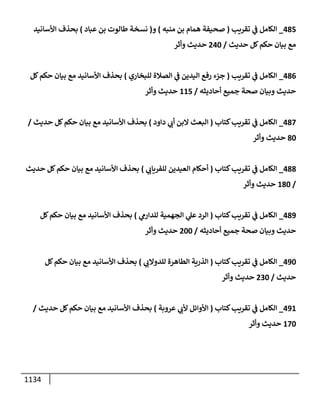 485_ الكامل في تقريب ( صحيفة همام بن منبه ) و( نسخة طالوت بن عباد ) بحذف الأسانيد
مع بيان حكم كل حديث / 240 حديث وأثر
486_ الكامل في تقريب ( جزء رفع اليدين في الصلاة للبخاري ) بحذف الأسانيد مع بيان حكم كل
حديث وبيان صحة جميع أحاديثه / 115 حديث وأثر
487_ الكامل في تقريب كتاب ( البعث لابن أبي داود ) بحذف الأسانيد مع بيان حكم كل حديث /
80 حديث وأثر
488_ الكامل في تقريب كتاب ( أحكام العيدين للفريابي ) بحذف الأسانيد مع بيان حكم كل حديث
/ 180 حديث وأثر
489_ الكامل في تقريب كتاب ( الرد علي الجهمية للدارمي ) بحذف الأسانيد مع بيان حكم كل
حديث وبيان صحة جميع أحاديثه / 200 حديث وأثر
490_ الكامل في تقريب كتاب ( الذرية الطاهرة للدولابي ) بحذف الأسانيد مع بيان حكم كل
حديث / 230 حديث وأثر
491_ الكامل في تقريب كتاب ( الأوائل لأبي عروبة ) بحذف الأسانيد مع بيان حكم كل حديث /
170 حديث وأثر
1134